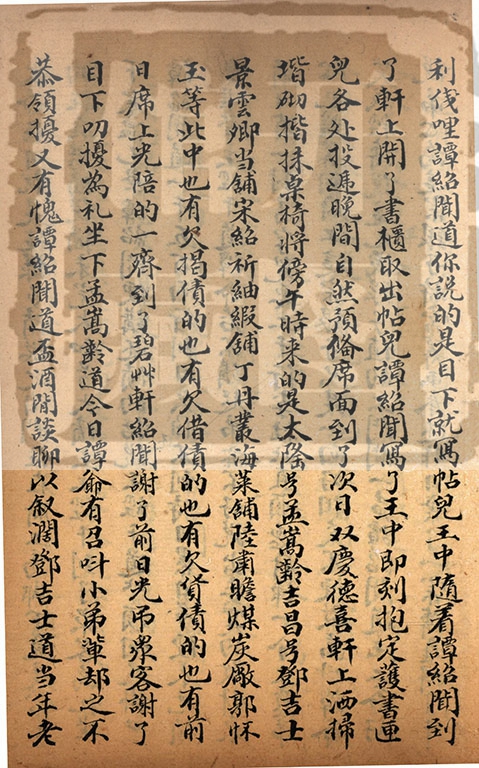 利伐哩譚紹聞道你說的是目下就寫帖兒王中隨着譚紹聞到
了軒上開了書櫃取出帖兒譚紹聞寫了王中即刻抱定護書匣
兒各处投遞晚間自然預俻席面到了次日双慶德喜軒上洒掃
堦砌揩抹桌椅將傍午時来的是太隆号孟嵩齡吉昌号鄧吉士
景雲卿当舖宋紹祈紬緞舖丁丹叢海菜舖陸肅瞻煤炭厰郭怀
玉等此中也有欠揭債的也有欠借債的也有欠貨債的也有前
日席上光陪的一齊到了碧艸軒紹聞謝了前日光吊衆客謝了
目下叨擾為礼坐下孟嵩齡道今日譚爺有召呌小弟輩却之不
恭領擾又有愧譚紹聞道盃酒閒談聊以叙濶鄧吉士道当年老